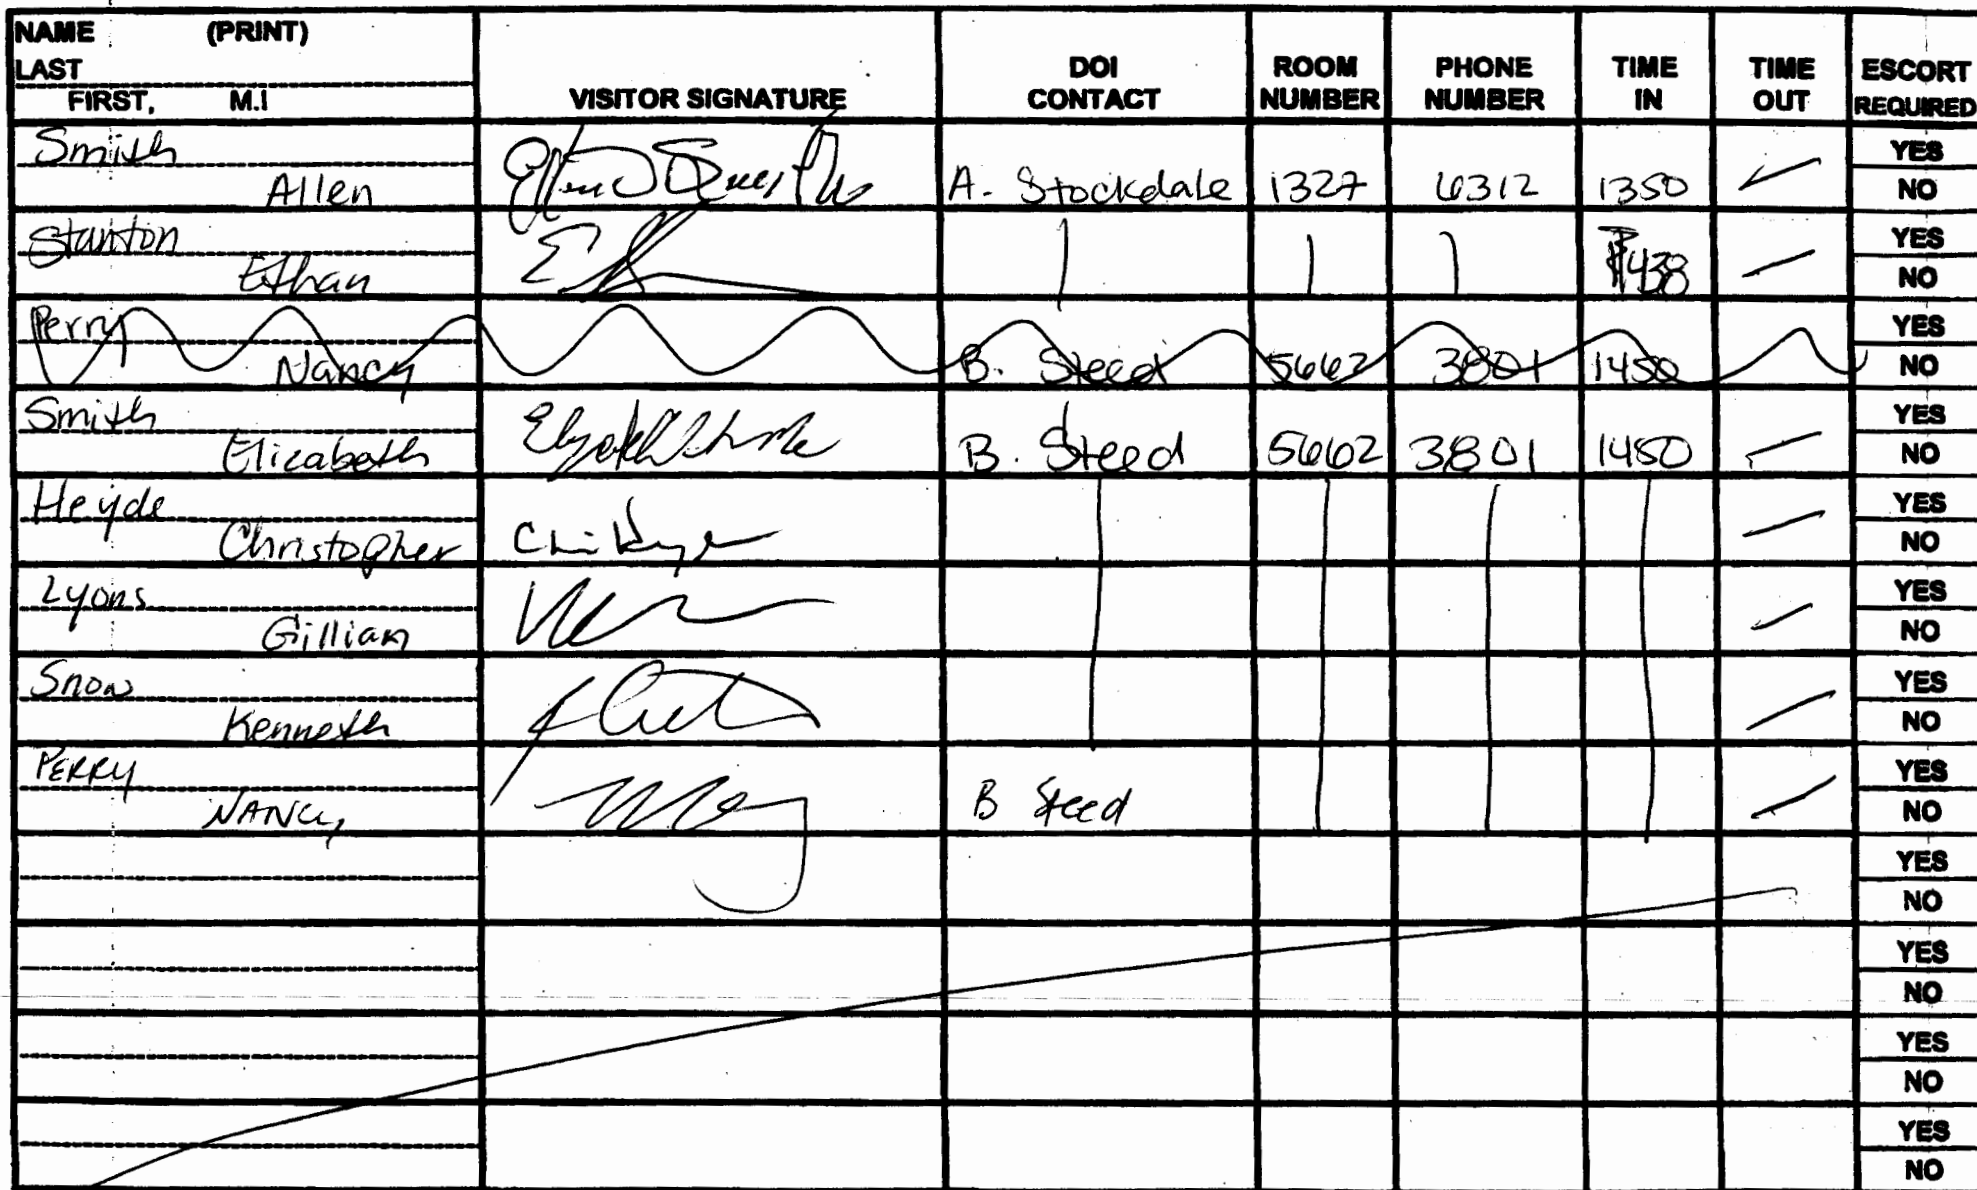 NAME (PRINT)
LAST
FIRST, M.I
VISITOR SIGNATURE
DOI CONTACT
ROOM NUMBER
PHONE NUMBER
TIME IN
TIME OUT
ESCORT REQUIRED
Smith YES
Allen A. Stockdale 1327 6312 1350 NO
Stanton YES
Ethan 1438 NO
Perry YES
Nancy B. Steed 5662 3801 1450 NO
Smith YES
Elizabeth B. Steed 5662 3801 1450 NO
Heyde YES
Christopher NO
Lyons YES
Gillian NO
Snow YES
Kenneth NO
PERRY YES
NANCY B Steed NO
YES
NO
YES
NO
YES
NO
YES
NO